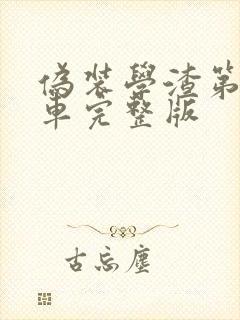 偽装學渣第
車完整版
古忘塵